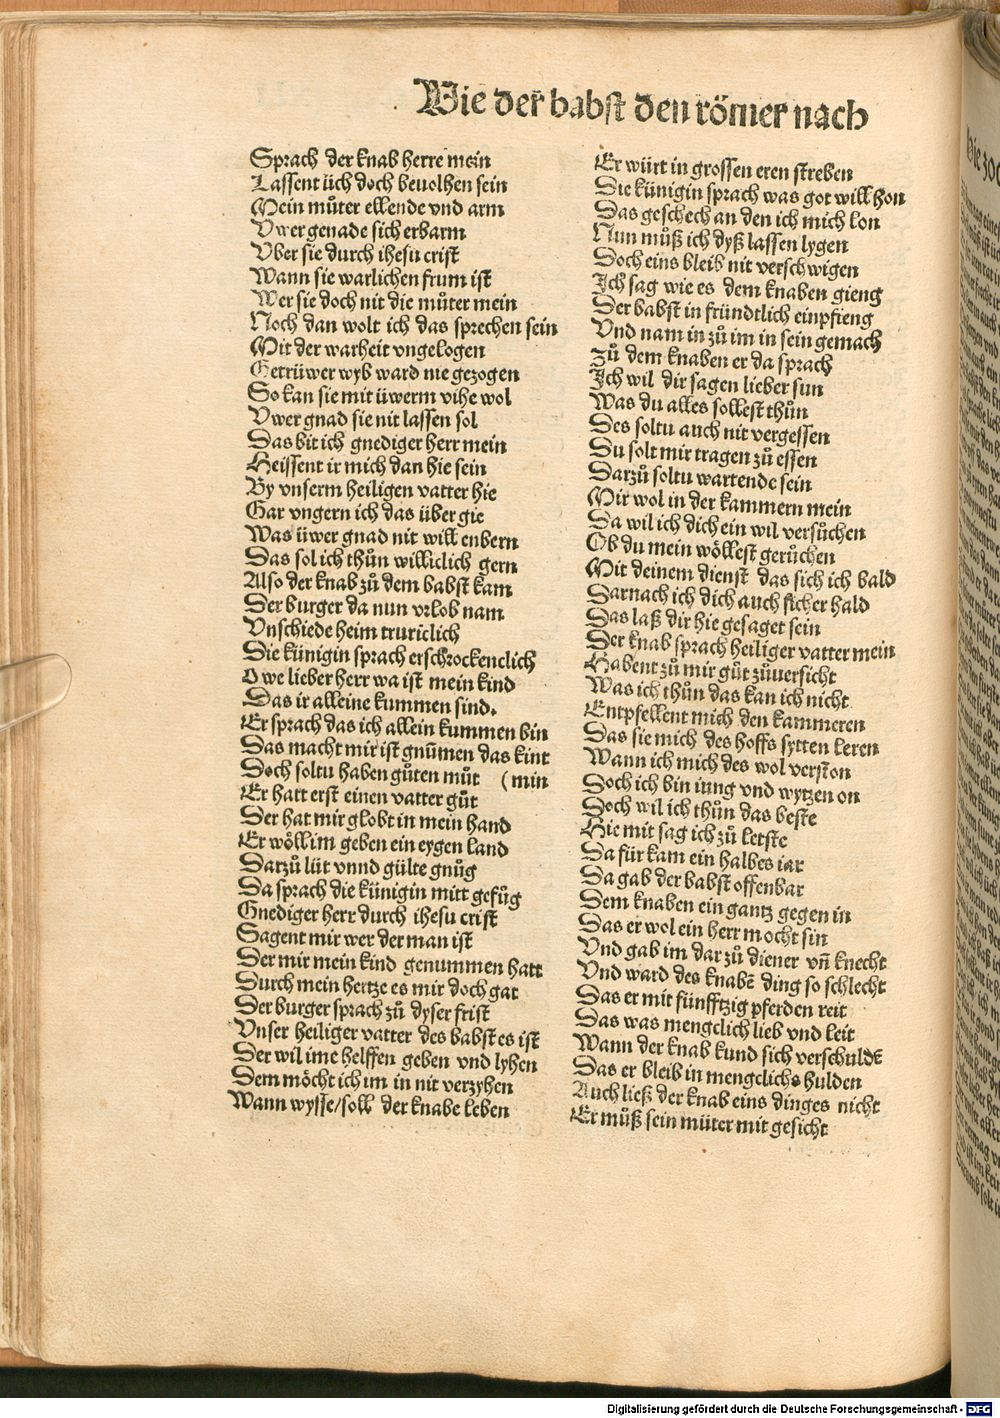 Wie der babst den römer nach
Sprach der knab herre mein
Lassent üch doch beuolhen sein
Mein můter ellende vnd arm
Vwer genade sich erbarm
Vber sie durch ihesu crist
Wann sie warlichen frum ist
Wer sie doch nit die můter mein
Noch dan wolt ich das sprechen sein
Mit der warheit vngelogen
Getrüwer wyb ward nie gezogen
So kan sie mit üwerm vihe wol
Vwer gnad sie nit lassen sol
Das bit ich gnediger herr mein
Heissent ir mich dan hie sein
By vnserm heiligen vatter hie
Gar vngern ich das über gie
Was üwer gnad nit will enbern
Das sol ich thůn williclich gern
Also der knab zů dem babst kam
Der burger da nun vrlob nam
Vnschiede heim truriclich
Die künigin sprach erschrockenclich
O we lieber herr wa ist mein kind
Das ir alleine kummen sind.
Er sprach das ich allein kummen bin
Das macht mir ist gnummen das kint
Doch soltu haben gůten můt (min
Er hatt erst einen vatter gůt
Der hat mir globt in mein hand
Er wöll im geben ein eygen land
Darzů lüt vnnd gülte gnůg
Da sprach die künigin mitt gefůg
Gnediger herr durch ihesu crist
Sagent mir wer der man ist
Der mir mein kind genummen hatt
Durch mein hertze es mir doch gat
Der burger sprach zů dyser frist
Vnser heiliger vatter des babst es ist
Der wil ime helffen geben vnd lyhen
Dem möcht ich im in nit verzyhen
Wann wysse/soll der knabe leben
Er würt in grossen eren streben
Die künigin sprach was got will hon
Das geschech an den ich mich lon
Nun můß ich dyß lassen lygen
Doch eins bleib nit verschwigen
Ich sag wie es dem knaben gieng
Der babst in fründtlich einpfieng
Vnd nam in zů im in sein gemach
Zů dem knaben er da sprach
Ich wil dir sagen lieber sun
Was du alles sollest thůn
Des soltu auch nit vergessen
Du solt mir tragen zů essen
Darzů soltu wartende sein
Mir wol in der kammern mein
Da wil ich dich ein wil versůchen
Ob du mein wöllest gerůchen
Mit deinem dienst das sich ich bald
Darnach ich dich auch sicher hald
Das laß dir hie gesaget sein
Der knab sprach heiliger vatter mein
Habent zů mir gůt zůuersicht
Was ich thůn das kan ich nicht
Entpfellent mich den kammeren
Das sie mich des hoffs sytten leren
Wann ich mich des wol verston
Doch ich bin iung vnd wytzen on
Doch wil ich thůn das beste
Hie mit sag ich zů letste
Da für kam ein halbes iar
Da gab der babst offenbar
Dem knaben ein gantz gegen in
Das er wol ein herr mocht sin
Vnd gab im dar zů diener vñ knecht
Vnd ward des knabẽ ding so schlecht
Das er mit fünfftzig pferden reit
Das was mengclich lieb vnd leit
Wann der knab kund sich verschuldẽ
Das er bleib in mengclichs hulden
Auch ließ der knab eins dinges nicht
Er můß sein müter mit gesicht
Digitalisierung gefördert durch die Deutsche Forschungsgemeinschaft - DFG